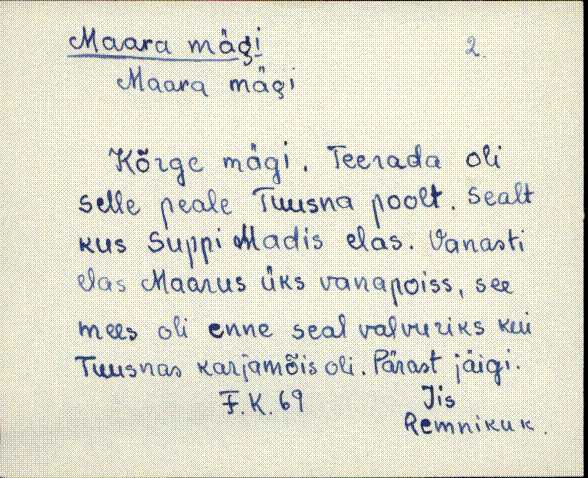 Maara mägi 2.
Maara mägi
Kõrge mägi. Teerada oli
selle peale Tuusna poolt. Sealt
kus Suppi Madis elas. Vanasti
elas Maarus üks vanapoiss, see
mees oli enne seal valvuriks kui
Tuusnas karjamõis oli. Pärast jäigi.
F.K. 69 Jis
Remnikuk.